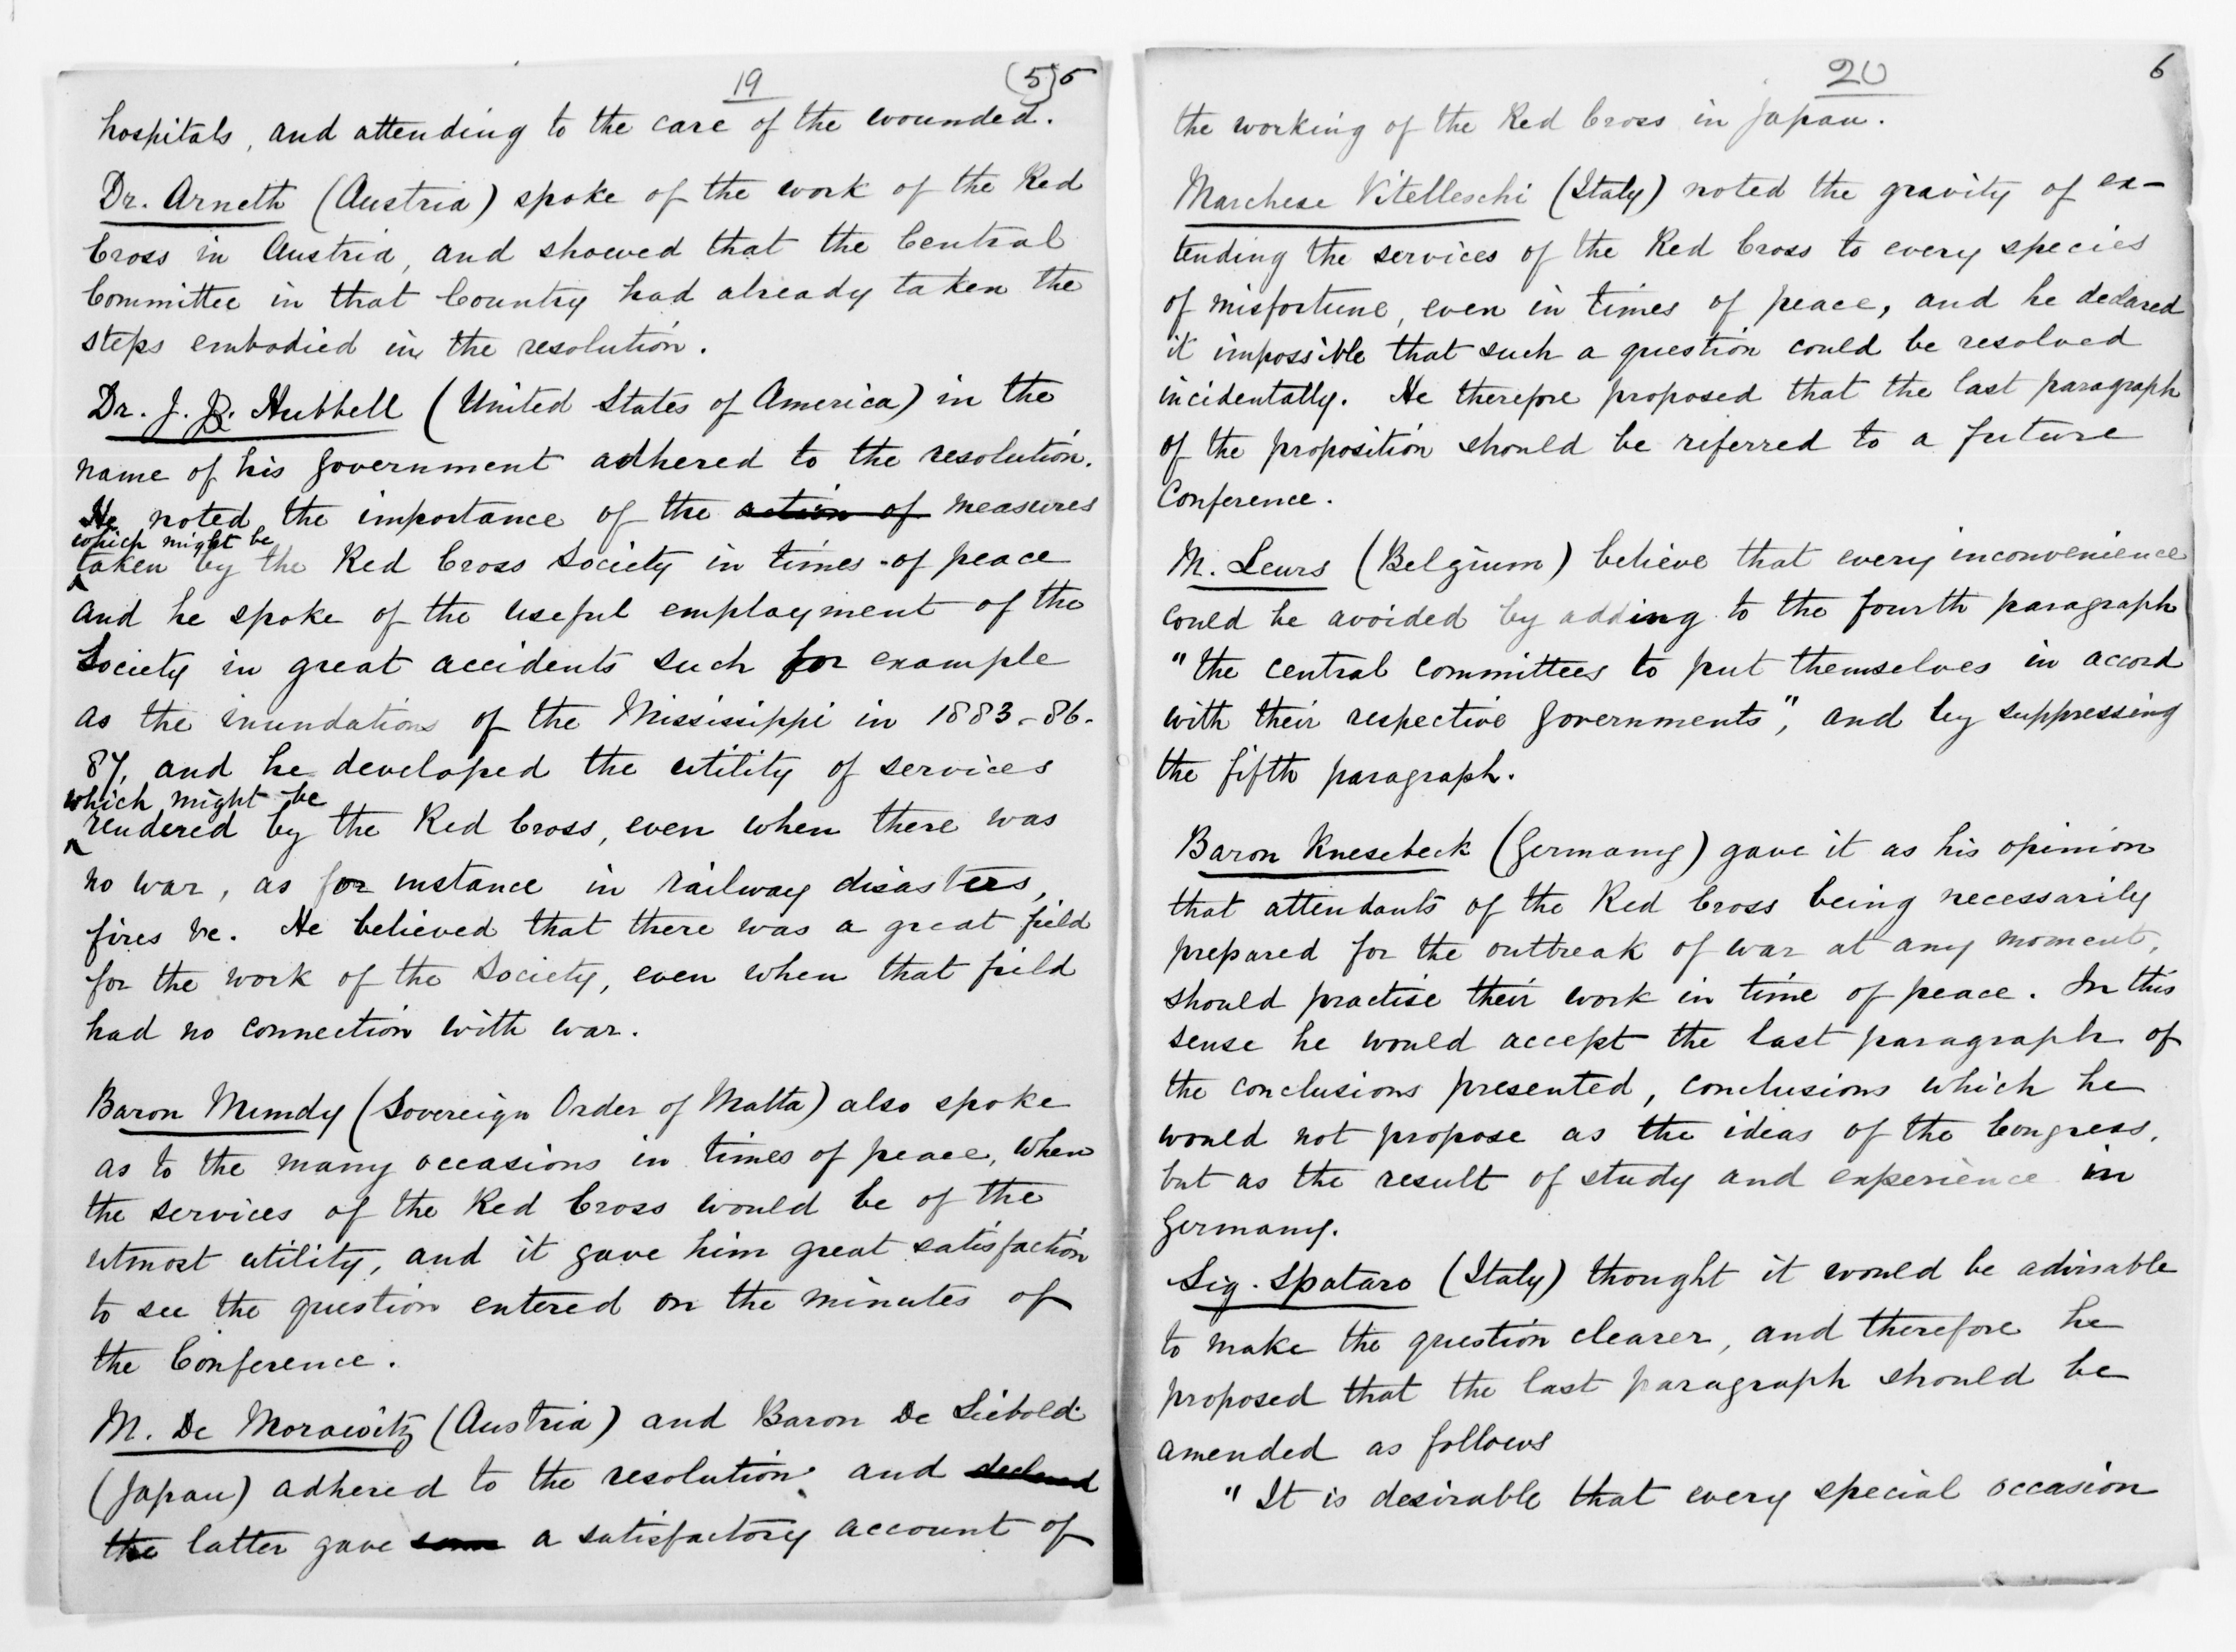 19
(5) 5
hospitals, and attending to the care of the wounded.
Dr. Arneth (Austria) spoke of the work of the Red
Cross in Austria, and showed that the Central
Committee in that Country had already taken the
steps embodied in the resolution.
Dr. J. B. Hubbell (United States of America) in the
name of his Government adhered to the resolution.
He noted the importance of the action of measures
which might be
taken by the Red Cross Society in times of peace
and he spoke of the useful employment of the
Society in great accidents such for example
as the inundations of the Mississippi in 1883-86-
87, and he developed the utility of services
which might be
rendered by the Red Cross, even when there was
no war, as for instance in railway disasters,
fires &c. He believed that there was a great field
for the work of the Society, even when that field
had no connection with war.
Baron Mundy (Sovereign Order of Malta) also spoke
as to the many occasions in times of peace, when
the services of the Red Cross would be of the
utmost utility, and it gave him great satisfaction
to see the question entered on the minutes of
the Conference.
M. De Morawitz (Austria) and Baron De Siebold
(Japan) adhered to the resolution and declared
the latter gave some a satisfactory account of
20
6
the working of the Red Cross in Japan.
Marchese Vitelleschi (Italy) noted the gravity of ex-
tending the services of the Red Cross to every species
of misfortune, even in times of peace, and he declared
it impossible that such a question could be resolved
incidentally. He therefore proposed that the last paragraph
of the proposition should be referred to a future
Conference.
M. Leurs (Belgium) believe that every inconvenience
could be avoided by adding to the fourth paragraph
"the central committees to put themselves in accord
with their respective Governments", and by suppressing
the fifth paragraph.
Baron Knesebeck (Germany) gave it as his opinion
that attendants of the Red Cross being necessarily
prepared for the outbreak of war at any moment,
should practise their work in time of peace. In this
sense he would accept the last paragraph of
the conclusions presented, conclusions which he
would not propose as the ideas of the Congress,
but as the result of study and experience in
Germany.
Sig. Spataro (Italy) thought it would be advisable
to make the question clearer, and therefore he
proposed that the last paragraph should be
amended as follows
"It is desirable that every special occasion